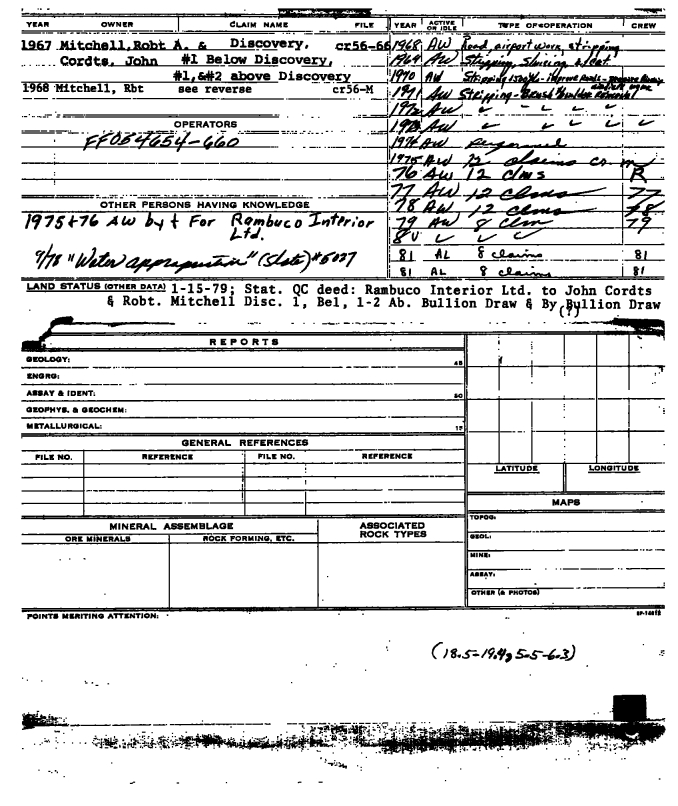 YEAR OWNER CLAIM NAME FILE YEAR ACTIVE OR IDLE TYPE OF OPERATION CREW
1967 Mitchell, Robt A. & Discovery, cr56-66 1968 AW Road, airport work, stripping
Cordts, John #1 Below Discovery, 1969 AW Stripping, Sluicing, a/cat.
#1,&#2 above Discovery 1970 AW Stripping
1968 Mitchell, Rbt see reverse cr56-M 1971 AW Stripping - Brush & Boulder Removal
1972 AW " " " "
OPERATORS 1973 AW " " " " "
FF054654-660 1974 AW
1975 AW 12 claims cr m
76 AW 12 clms R
77 AW 12 clms 77
OTHER PERSONS HAVING KNOWLEDGE 78 AW 12 clms 78
1975+76 AW by & For Rambuco Interior Ltd. 79 AW 8 clm 79
80 " " "
9/78 "Water appropriation" (State) #6027 81 AL 8 claims 81
81 AL 8 claims 81
LAND STATUS (OTHER DATA) 1-15-79; Stat. QC deed: Rambuco Interior Ltd. to John Cordts
& Robt. Mitchell Disc. 1, Bel, 1-2 Ab. Bullion Draw & By Bullion Draw
(?)
REPORTS
GEOLOGY:
ENGRG:
ASSAY & IDENT:
GEOPHYS. & GEOCHEM:
METALLURGICAL:
GENERAL REFERENCES
FILE NO. REFERENCE FILE NO. REFERENCE
LATITUDE LONGITUDE
MAPS
TOPOG:
GEOL:
MINE:
ASSAY:
OTHER (& PHOTOS)
MINERAL ASSEMBLAGE ASSOCIATED ROCK TYPES
ORE MINERALS ROCK FORMING, ETC.
POINTS MERITING ATTENTION:
(18.5-19.4, 5.5-6.3)